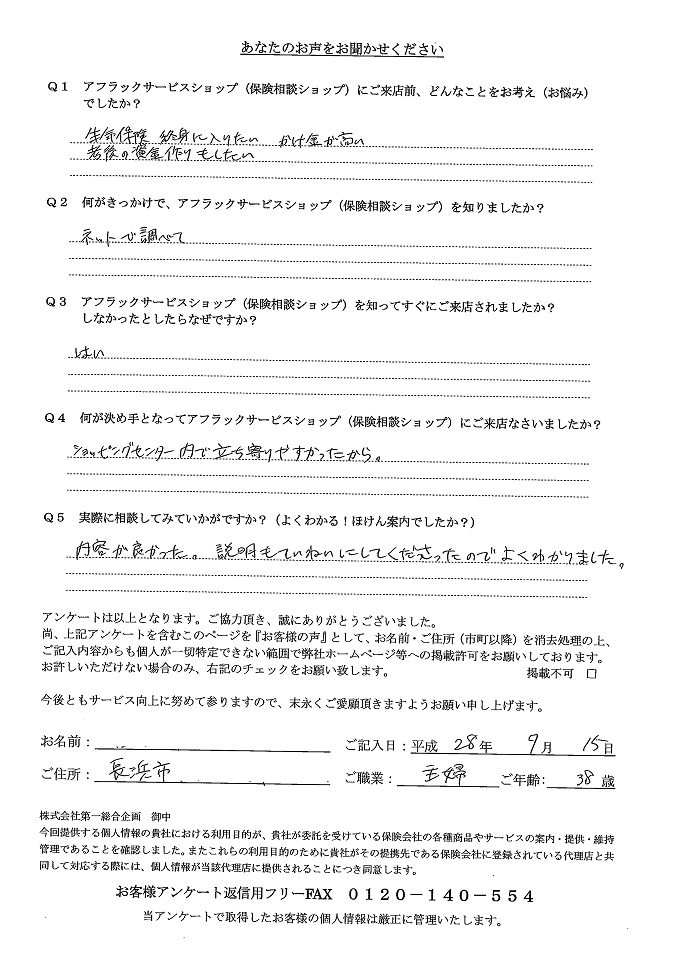 あなたのお声をお聞かせください
Q1 アフラックサービスショップ(保険相談ショップ)にご来店前、どんなことをお考え(お悩み)
でしたか?
生命保険 終身に入りたい かけ金が高い
老後の資金作りもしたい
Q2 何がきっかけで、アフラックサービスショップ(保険相談ショップ)を知りましたか?
ネットで調べて
Q3 アフラックサービスショップ(保険相談ショップ)を知ってすぐにご来店されましたか?
しなかったとしたらなぜですか?
はい
Q4 何が決め手となってアフラックサービスショップ(保険相談ショップ)にご来店なさいましたか?
ショッピングセンター内で立ち寄りやすかったから。
Q5 実際に相談してみていかがですか?(よくわかる!ほけん案内でしたか?)
内容が良かった。説明もていねいにしてくださったのでよくわかりました。
アンケートは以上となります。ご協力頂き、誠にありがとうございました。
尚、上記アンケートを含むこのページを『お客様の声』として、お名前・ご住所(市町以降)を消去処理の上、
ご記入内容からも個人が一切特定できない範囲で弊社ホームページ等への掲載許可をお願いしております。
お許しいただけない場合のみ、右記のチェックをお願い致します。 掲載不可 □
今後ともサービス向上に努めて参りますので、末永くご愛顧頂きますようお願い申し上げます。
お名前: ご記入日:平成 28年 9月 15日
ご住所: 長浜市 ご職業: 主婦 ご年齢: 38歳
株式会社第一総合企画 御中
今回提供する個人情報の貴社における利用目的が、貴社が委託を受けている保険会社の各種商品やサービスの案内・提供・維持
管理であることを確認しました。またこれらの利用目的のために貴社がその提携先である保険会社に登録されている代理店と共
同して対応する際には、個人情報が当該代理店に提供されることにつき同意します。
お客様アンケート返信用フリーFAX 0120-140-554
当アンケートで取得したお客様の個人情報は厳正に管理いたします。